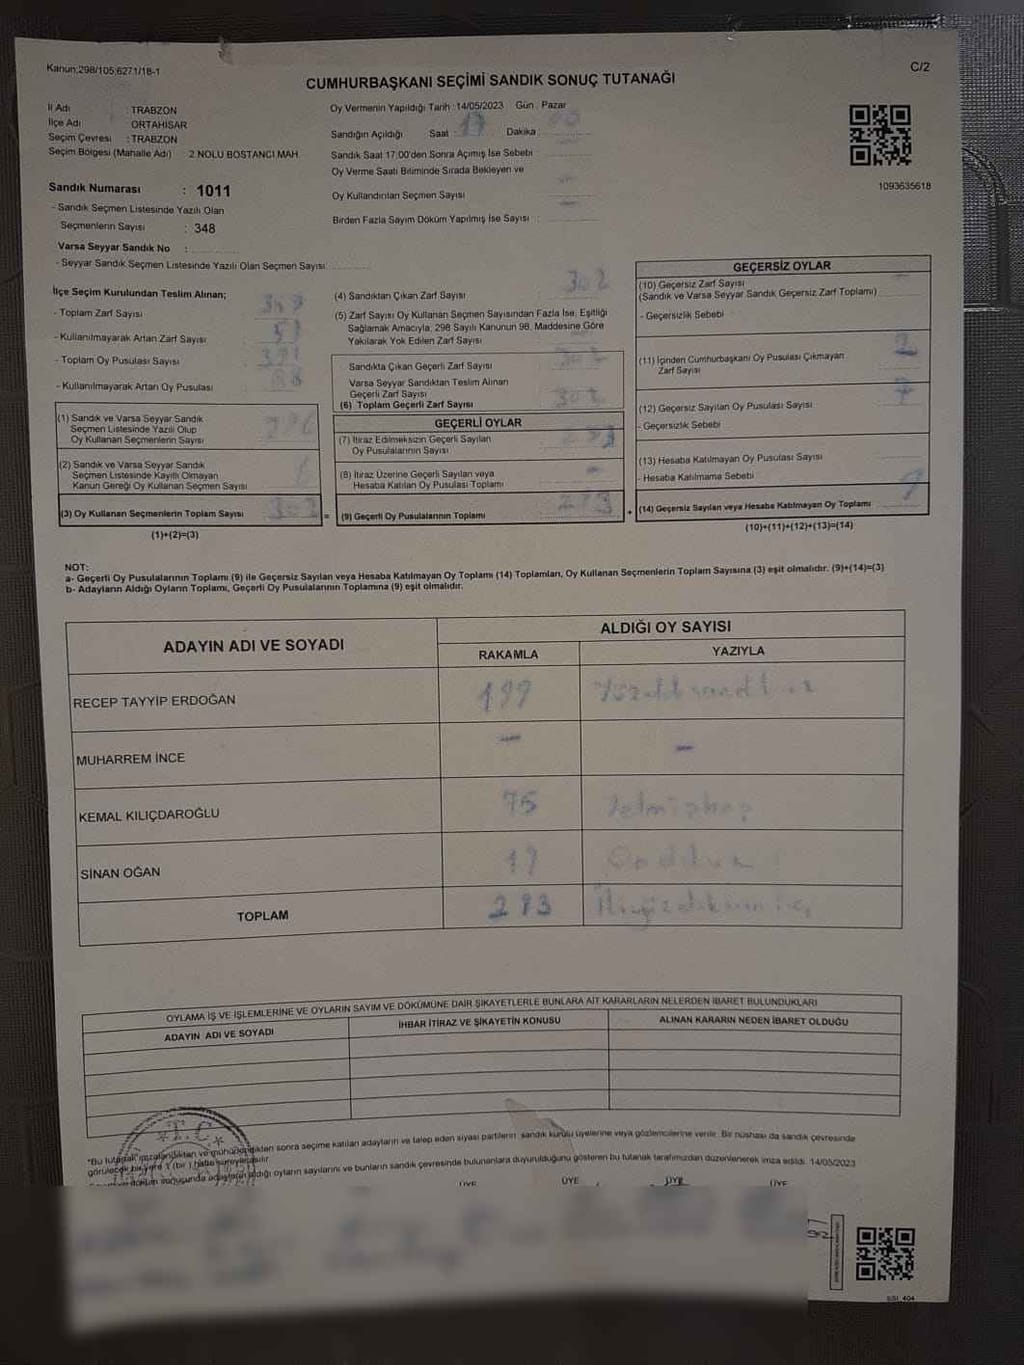 Kanun;298/105;6271/18-1
C/2
CUMHURBAŞKANI SEÇİMİ SANDIK SONUÇ TUTANAĞI
İl Adı TRABZON
İlçe Adı ORTAHİSAR
Seçim Çevresi : TRABZON
Seçim Bölgesi (Mahalle Adı) 2 NOLU BOSTANCI MAH
Sandık Numarası : 1011
- Sandık Seçmen Listesinde Yazılı Olan
Seçmenlerin Sayısı : 348
Varsa Seyyar Sandık No :
- Seyyar Sandık Seçmen Listesinde Yazılı Olan Seçmen Sayısı
Oy Vermenin Yapıldığı Tarih :14/05/2023 Gün : Pazar
Sandığın Açıldığı Saat : 17 Dakika 00
Sandık Saat 17:00'den Sonra Açımış İse Sebebi
Oy Verme Saati Bitiminde Sırada Bekleyen ve
Oy Kullandırılan Seçmen Sayısı
Birden Fazla Sayım Döküm Yapılmış İse Sayısı :
1093635618
İlçe Seçim Kurulundan Teslim Alınan;
- Toplam Zarf Sayısı
- Kullanılmayarak Artan Zarf Sayısı
- Toplam Oy Pusulası Sayısı
- Kullanılmayarak Artan Oy Pusulası
(1) Sandık ve Varsa Seyyar Sandık
Seçmen Listesinde Yazılı Olup
Oy Kullanan Seçmenlerin Sayısı
(2) Sandık ve Varsa Seyyar Sandık
Seçmen Listesinde Kayıtlı Olmayan
Kanun Gereği Oy Kullanan Seçmen Sayısı
(3) Oy Kullanan Seçmenlerin Toplam Sayısı 302 =
(1)+(2)=(3)
(4) Sandıktan Çıkan Zarf Sayısı 302
(5) Zarf Sayısı Oy Kullanan Seçmen Sayısından Fazla İse, Eşitliği
Sağlamak Amacıyla, 298 Sayılı Kanunun 98. Maddesine Göre
Yakılarak Yok Edilen Zarf Sayısı
Sandıkta Çıkan Geçerli Zarf Sayısı 302
Varsa Seyyar Sandıktan Teslim Alınan
Geçerli Zarf Sayısı
(6) Toplam Geçerli Zarf Sayısı 302
GEÇERLİ OYLAR
(7) İtiraz Edilmeksizin Geçerli Sayılan
Oy Pusulalarının Sayısı 293
(8) İtiraz Üzerine Geçerli Sayılan veya
Hesaba Katılan Oy Pusulası Toplamı -
(9) Geçerli Oy Pusulalarının Toplamı 293 +
GEÇERSİZ OYLAR
(10) Geçersiz Zarf Sayısı -
(Sandık ve Varsa Seyyar Sandık Geçersiz Zarf Toplamı)
- Geçersizlik Sebebi
(11) İçinden Cumhurbaşkanı Oy Pusulası Çıkmayan
Zarf Sayısı 2
(12) Geçersiz Sayılan Oy Pusulası Sayısı 7
- Geçersizlik Sebebi
(13) Hesaba Katılmayan Oy Pusulası Sayısı
- Hesaba Katılmama Sebebi
(14) Geçersiz Sayılan veya Hesaba Katılmayan Oy Toplamı 9
(10)+(11)+(12)+(13)=(14)
NOT:
a- Geçerli Oy Pusulalarının Toplamı (9) ile Geçersiz Sayılan veya Hesaba Katılmayan Oy Toplamı (14) Toplamları, Oy Kullanan Seçmenlerin Toplam Sayısına (3) eşit olmalıdır. (9)+(14)=(3)
b- Adayların Aldığı Oyların Toplamı, Geçerli Oy Pusulalarının Toplamına (9) eşit olmalıdır.
ADAYIN ADI VE SOYADI
ALDIĞI OY SAYISI
RAKAMLA YAZIYLA
RECEP TAYYİP ERDOĞAN 199
MUHARREM İNCE - -
KEMAL KILIÇDAROĞLU 75
SİNAN OĞAN 19
TOPLAM 293
OYLAMA İŞ VE İŞLEMLERİNE VE OYLARIN SAYIM VE DÖKÜMÜNE DAİR ŞİKAYETLERLE BUNLARA AİT KARARLARIN NELERDEN İBARET BULUNDUKLARI
ADAYIN ADI VE SOYADI İHBAR İTİRAZ VE ŞİKAYETİN KONUSU ALINAN KARARIN NEDEN İBARET OLDUĞU
T.C.
"Bu tutanak imzalandıktan ve mühürlendikten sonra seçime katılan adayların ve talep eden siyasi partilerin sandık kurulu üyelerine veya gözlemcilerine verilir. Bir nüshası da sandık çevresinde
görülecek bir yere 1 (bir) hafta süreyle asılır.
adayların aldığı oyların sayılarını ve bunların sandık çevresinde bulunanlara duyurulduğunu gösteren bu tutanak tarafımızdan düzenlenerek imza edildi. 14/05/2023
ÜYE ÜYE ÜYE ÜYE